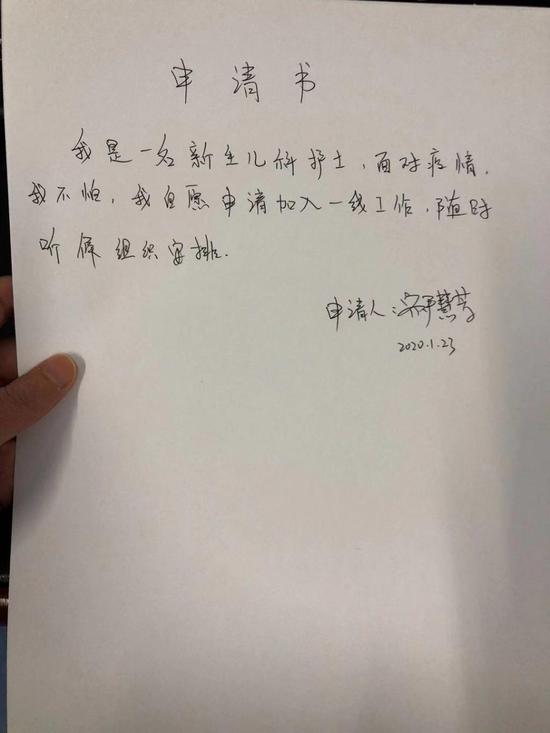 申请书
我是一名新生儿科护士，面对疫情，
我不怕，我自愿申请加入一线工作，随时
听候组织安排.
申请人：慧芳
2020.1.23